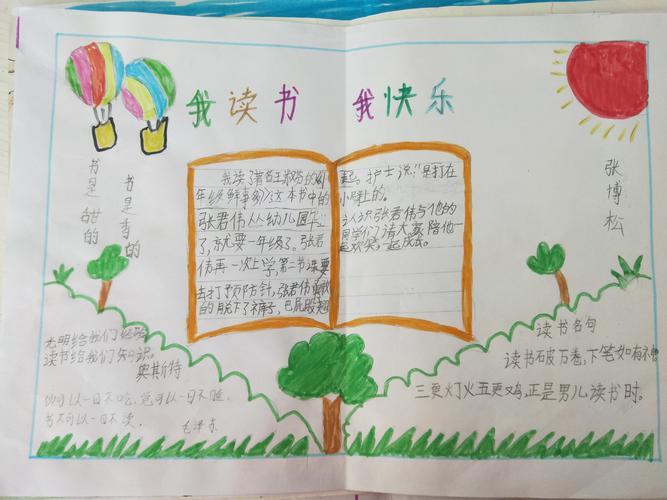 我读书 我快乐
书是甜的
书是香的
张博松
我读了著名王淑芬的《1
年级鲜事多》这本书中的
张君伟从幼儿园毕
了，就要一年级了。张君
伟再一次上学，第一节课要
去打预防针，张君伟
的脱下了裤子，巴屁股翘
起。护士说：“是打在
小臂上的。
认识张君伟与他的
同学们，请大家陪他
起欢笑，一起成长。
光明给我们经验
读书给我们知识。
奥斯特
饭可以一日不吃，觉可以一日不睡，
书不可以一日不读。
毛泽东
读书名句
读书破万卷，下笔如有神
三更灯火五更鸡，正是男儿读书时。